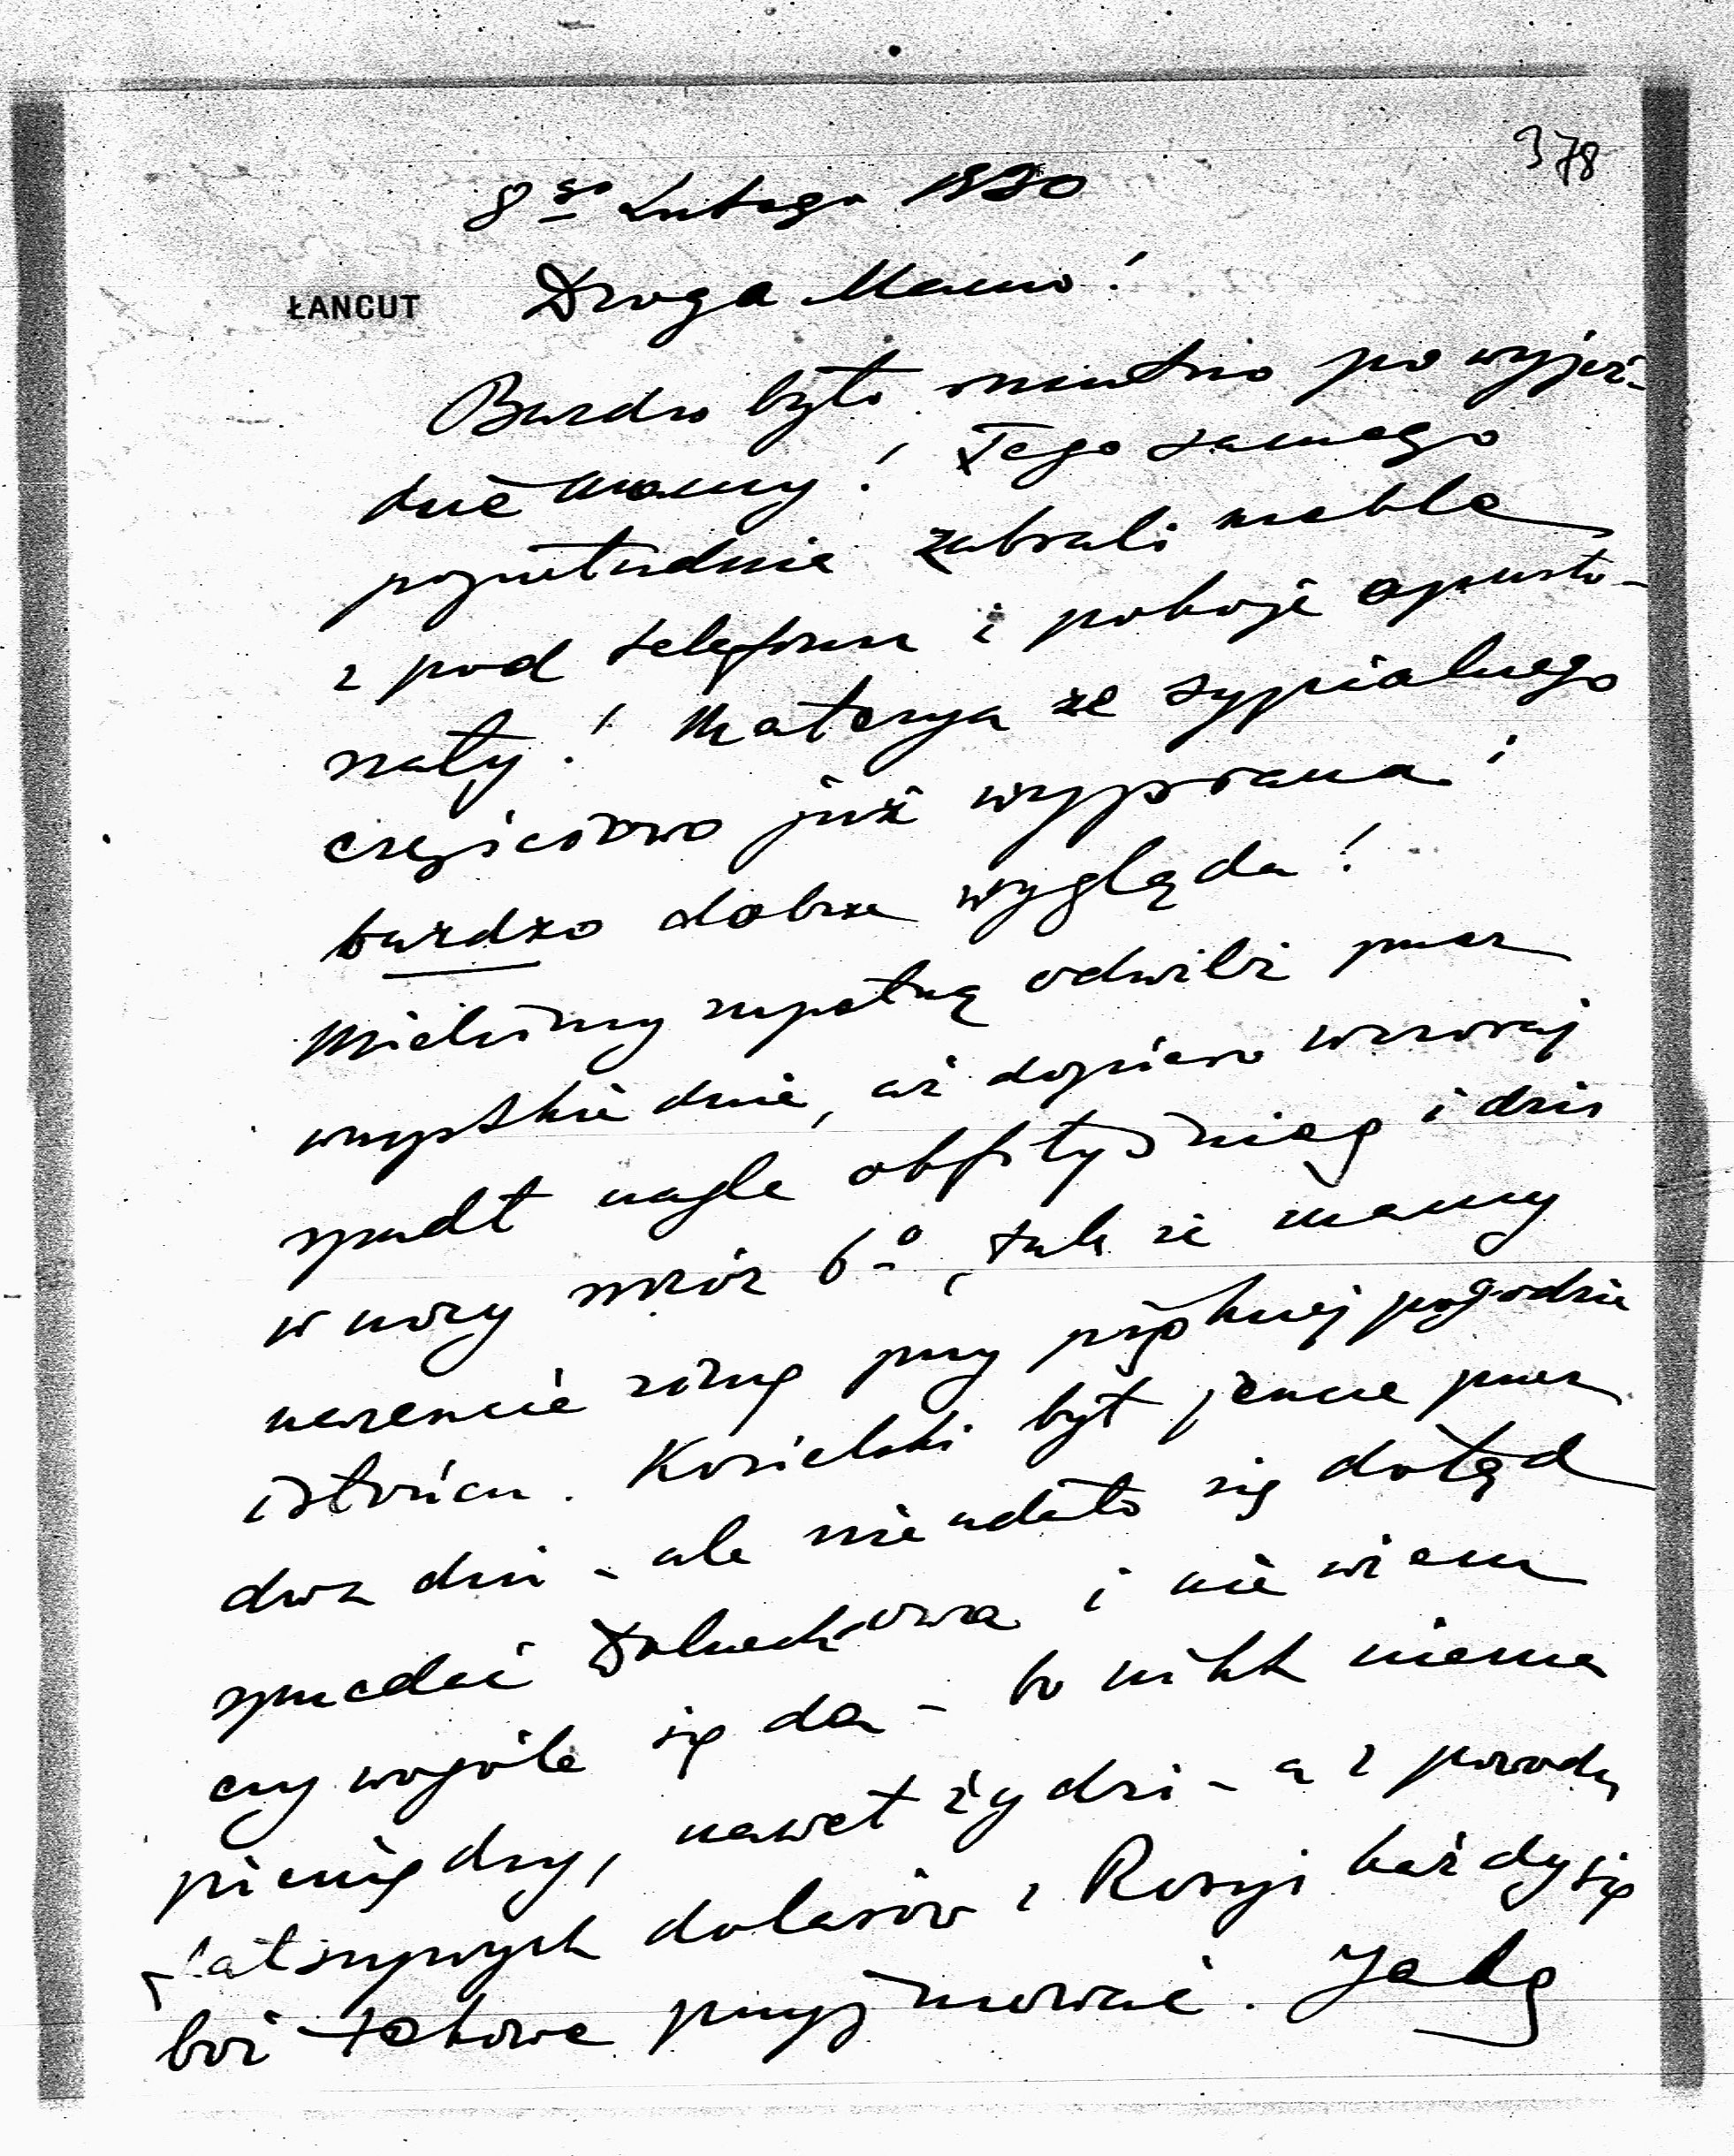 378
8go Lutego 1930
ŁANCUT
Droga Mamo!
Bardzo było smutno po wyjeź-
dzie Mamy! Tego samego
popołudnia zabrali meble
z pod telefonu i pokoje opusto-
szały! Materya ze sypialnego
częściowo już wyprana i
bardzo dobrze wygląda!
Mieliśmy zupełną odwilż przez
wszystkie dnie, aż dopiero wczoraj
spadł nagle obfity śnieg i dziś
w nocy mróz 6°, tak że mamy
nareszcie zimę przy pięknej pogodzie
i słońcu. Kosielski był jeszcze przez
dwa dni - ale nie udało się dotąd
sprzedać i nie wiem
czy wogóle się da - bo nikt niema
pieniędzy, nawet żydzi - a z powodu
fałszywych dolarów z Rosyi każdy się
boi takowe przyjmować. Jadę